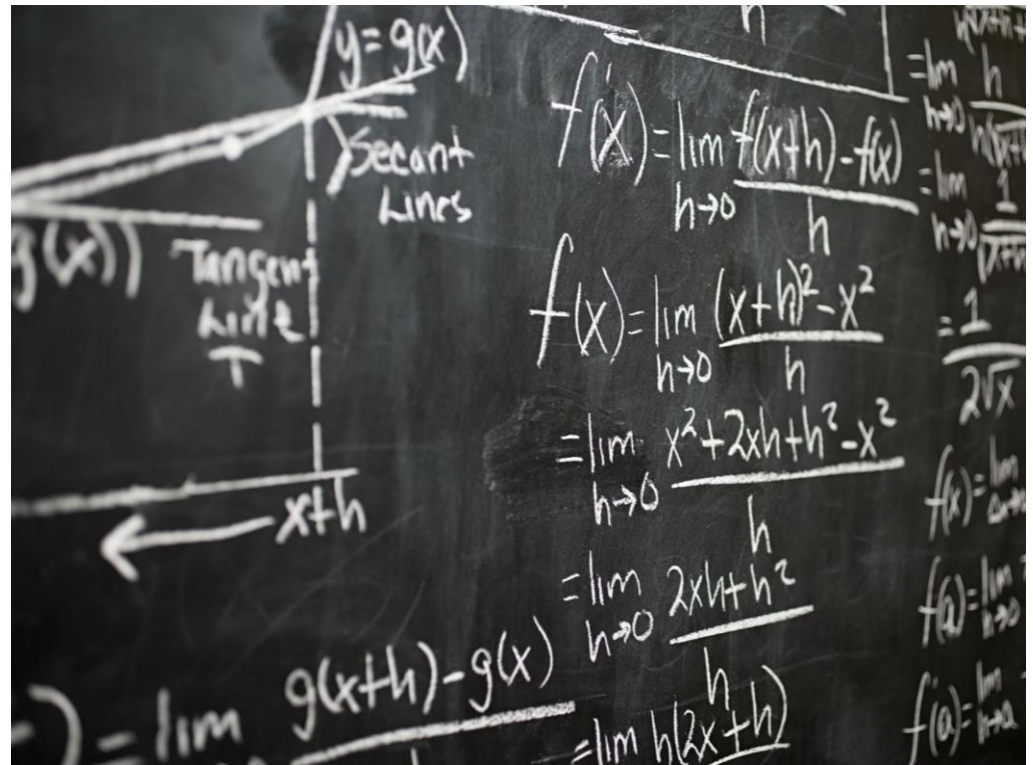 y = g(x)
Secant
Lines
g(x))
Tangent
Line
T
x+h
) = lim g(x+h) - g(x)
h
f'(x) = lim h→0 f(x+h) - f(x) / h
f(x) = lim h→0 (x+h)² - x² / h
= lim h→0 x² + 2xh + h² - x² / h
= lim h→0 2xh + h² / h
= lim h(2x+h)
= lim h→0 h
= lim h→0 1
= 1 / 2√x
f(x) = lim
f(a) = lim h→0
f'(a) = lim h→a